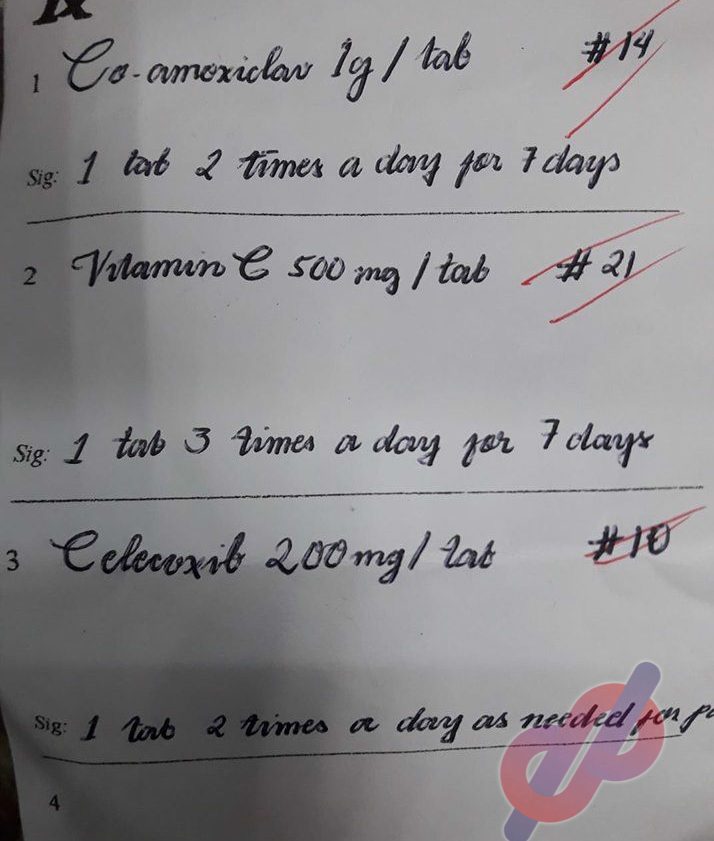 Rx
1 Co-amoxiclav 1g / tab #14
Sig: 1 tab 2 times a day for 7 days
2 Vitamin C 500 mg / tab #21
Sig: 1 tab 3 times a day for 7 days
3 Celecoxib 200 mg / tab #10
Sig: 1 tab 2 times a day as needed for
4